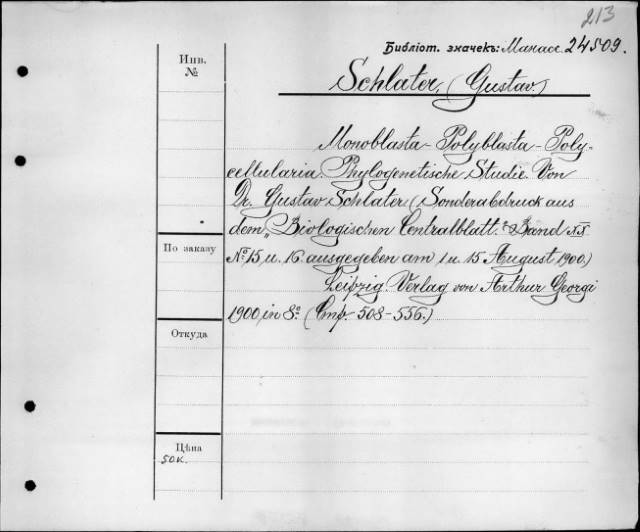 213
Библіот. значекъ: Манасс. 24509.
Инв.
№
Schlater, (Gustav.)
Monoblasta - Polyblasta - Poly-
cellularia. Phylogenetische Studie. Von
Dr. Gustav Schlater (Sonderabdruck aus
dem „Biologischen Centralblatt." Band XX
По заказу
№ 15 u. 16 ausgegeben am 1 u. 15 August 1900.)
Leipzig. Verlag von Arthur Georgi
1900, in 8° (Стр. 508-556.)
Откуда
Цѣна
50 к.